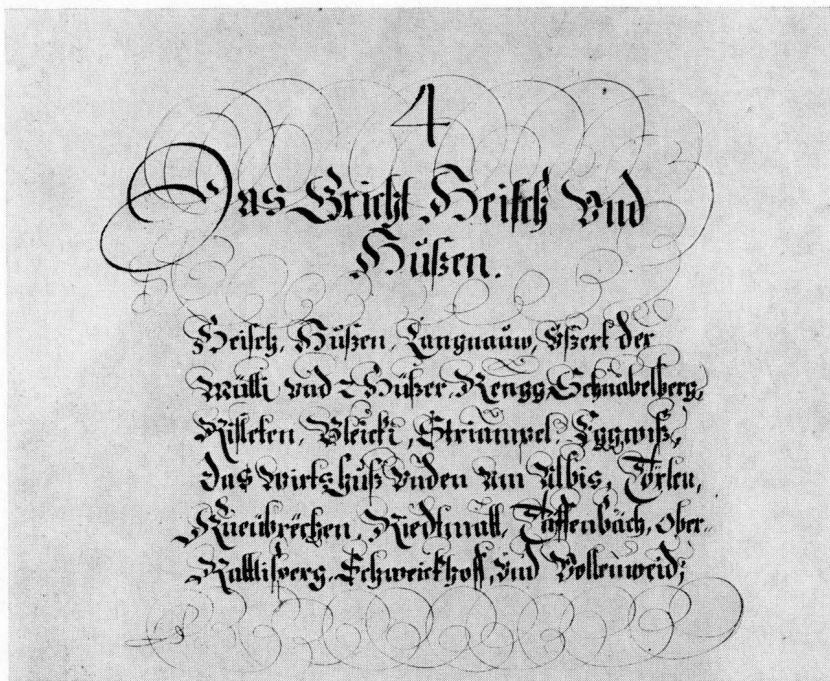 4
Das Gricht Heisch Vnd
Hußen.
Heisch, Hußen, Langnauw, Vßert der
vnd 2 Hüßer, Rengg, Schnabelberg,
Rißleten, Bleicki, Striampel, Eggwiß,
das Wirtshuß Vnden Am Albis, Törlen,
Kneübrechen, Riedtmatt, Täffenbach, Ober-
Rattlisperg, Schweickhoff, vnd Vollenweid;